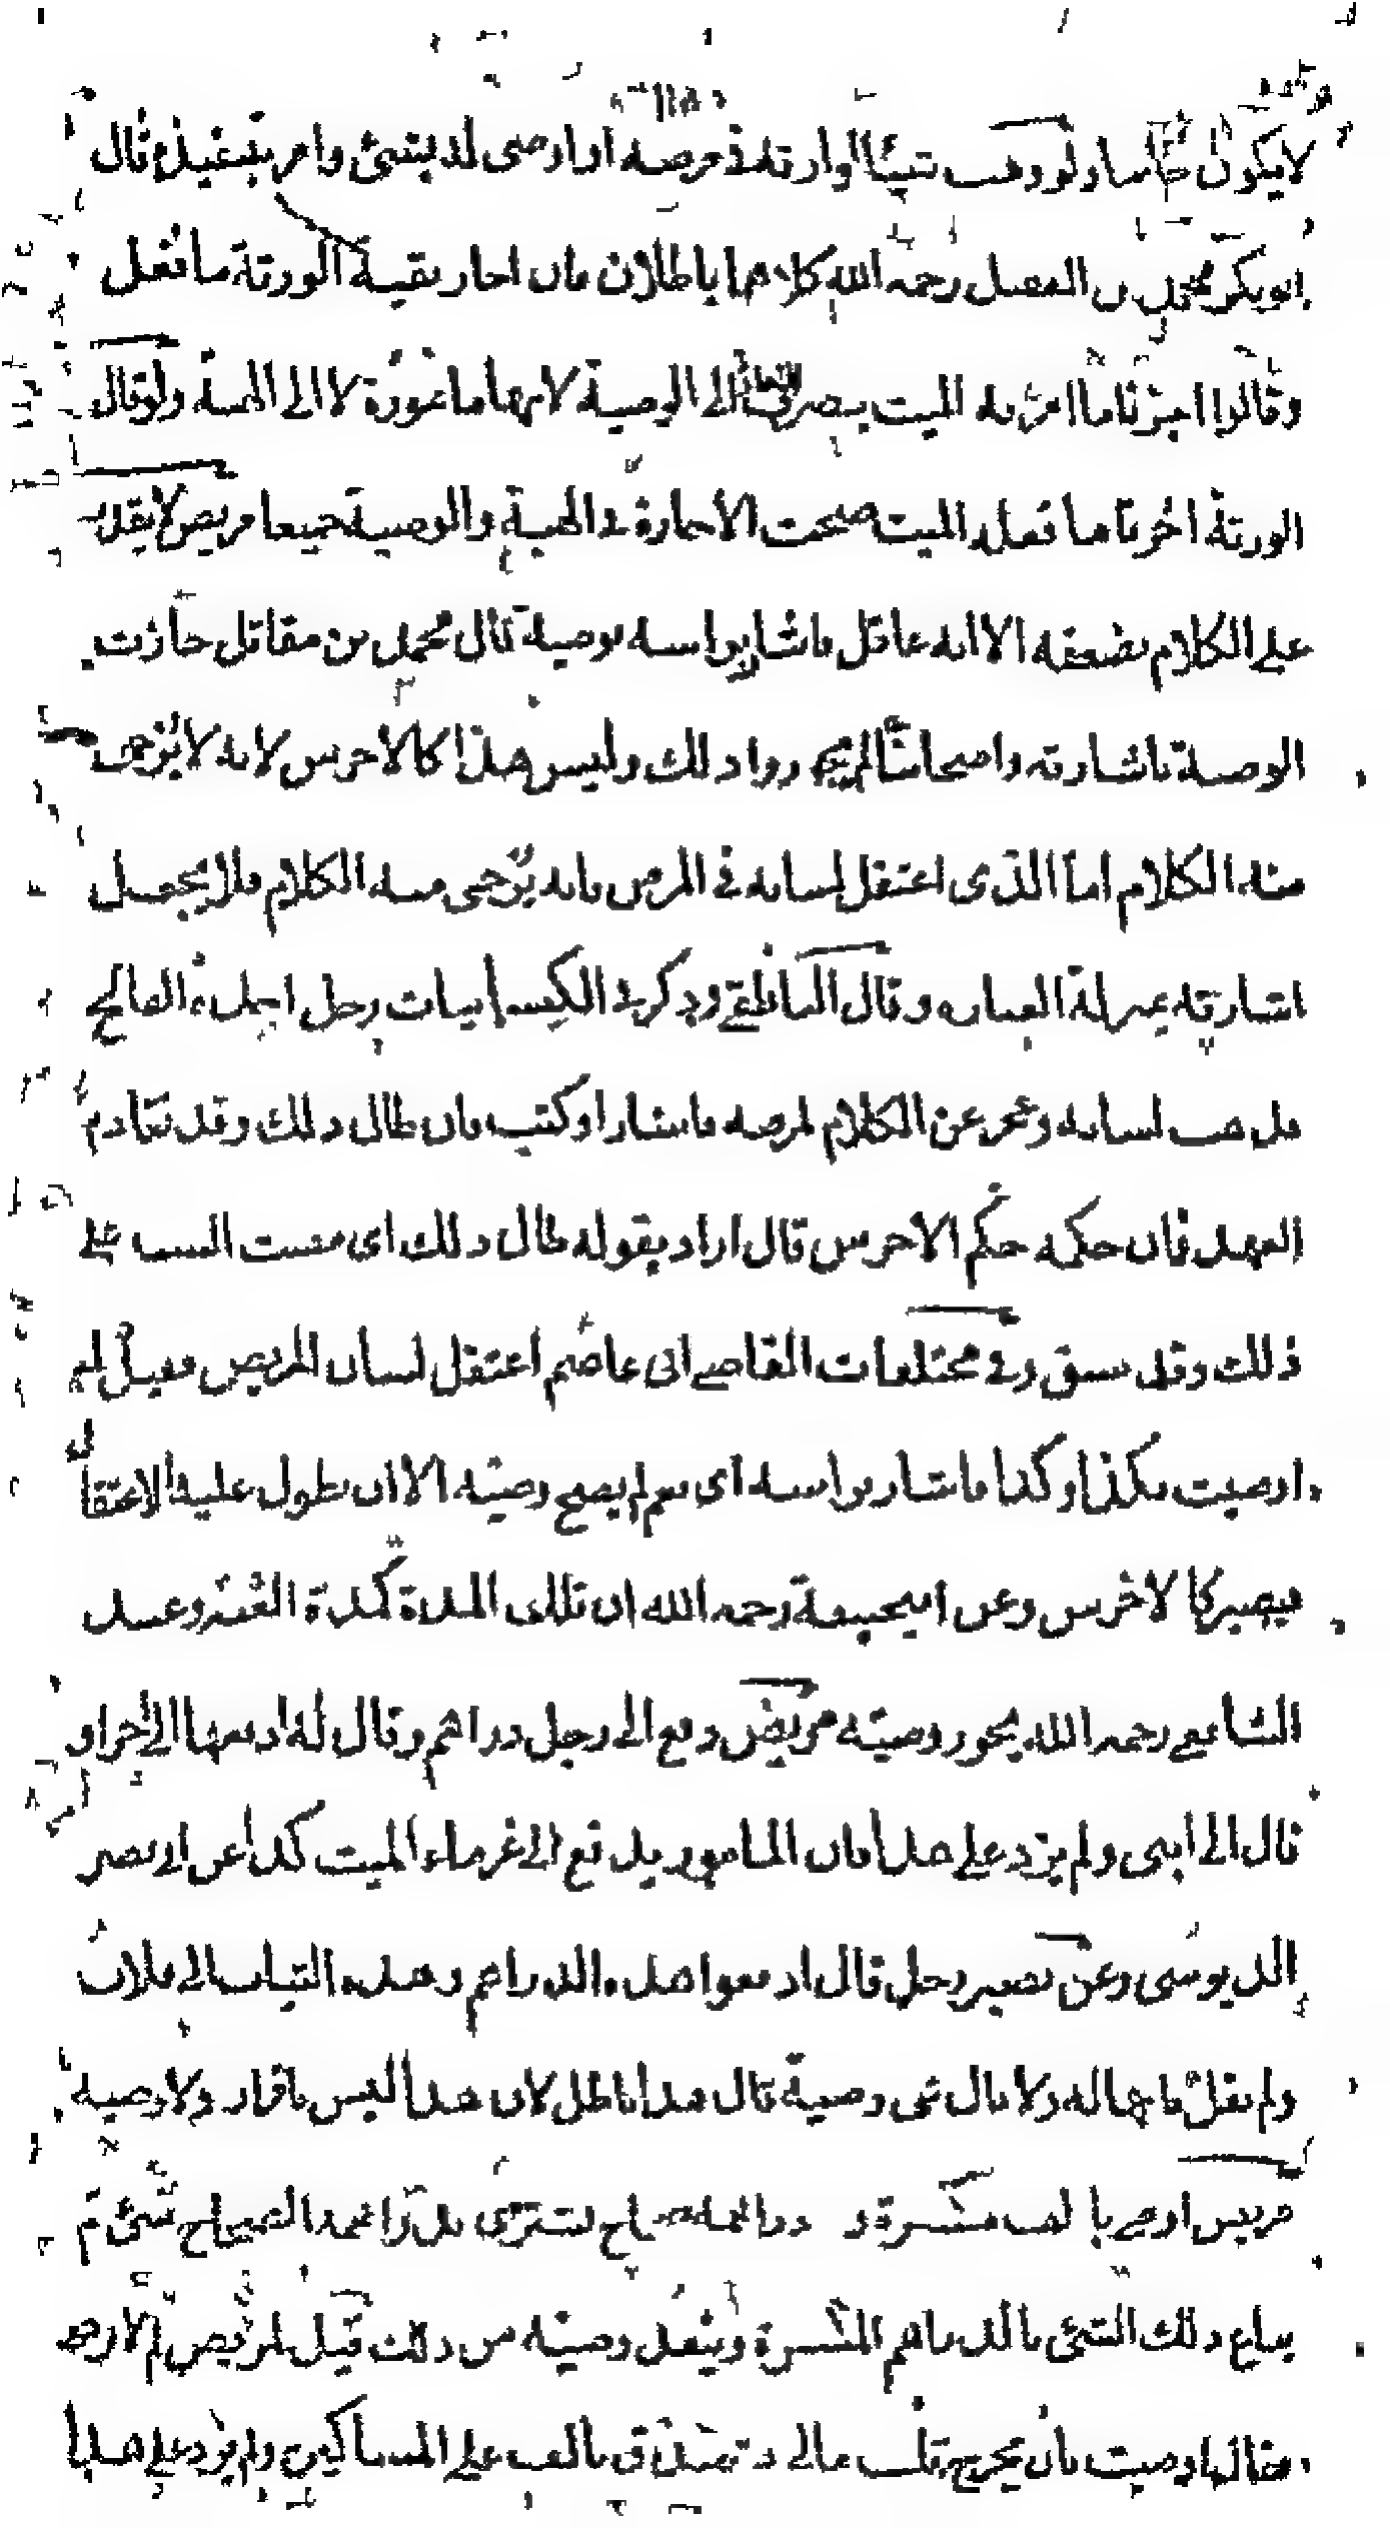 لا يكون حانثا ولو وهب شيئا لوارثه في مرضه او اوصى له بشئ وامر بتنفيذه قال
ابو بكر محمد بن الفضل رحمه الله كلاهما باطلان فان اجاز بقية الورثة ما فعل
وقالوا اجزنا ما امر به الميت ينصرف الى الوصية لانها مامورة لا الى الهبة ولو قال
الورثة اجزنا ما فعله الميت صحت الاجازة في الهبة والوصية جميعا مريض لا يقدر
على الكلام لضعفه الا انه عاقل فاشار براسه بوصية قال محمد بن مقاتل جازت
الوصية باشارته واصحابنا لم يجوزوا ذلك وليس هذا كالاخرس لانه لا يرجى
منه الكلام اما الذى اعتقل لسانه في المرض فانه يرجى منه الكلام فلا يجعل
اشارته بمنزلة العبارة وقال الناطفي وذكر في الكيسانيات رجل اصابه الفالج
فذهب لسانه وعجز عن الكلام لمرضه فاشار او كتب فان طال ذلك وقد تقادم
العهد فان حكمه حكم الاخرس قال اراد بقوله طال ذلك اى مضت السنة على
ذلك وقد سبق وفي مختلفات القاضي ابى عاصم اعتقل لسان المريض فقيل له
اوصيت بكذا وكذا فاشار براسه اى نعم لم يصح وصيته الا ان يطول عليه الاعتقال
فيصير كالاخرس وعن ابيحنيفة رحمه الله ان تلك المدة كمدة العنة وعند
الشافعي رحمه الله يجوز وصيته مريض دفع الى رجل دراهم وقال له ادفعها الى اخي او
قال الى ابنى ولم يزد على هذا فان المامور يدفع الى غرماء الميت كذا عن ابى نصر
الدبوسى وعن نصير رجل قال ادفعوا هذه الدراهم وهذه الثياب الى فلان
ولم يقل فانها له ولا قال هى وصية قال هذا باطل لان هذا ليس باقرار ولا وصية
مريض اوصى بالف مكسرة و دراهمه صحاح يشترى بدراهمه الصحاح شئ ثم
يباع ذلك الشئ بالدراهم المكسرة وينفذ وصيته من ذلك قيل لمريض لم لا توصي
فقال اوصيت بان يخرج ثلث مالى و تصدق بالف على المساكين ولم يزد على هذا